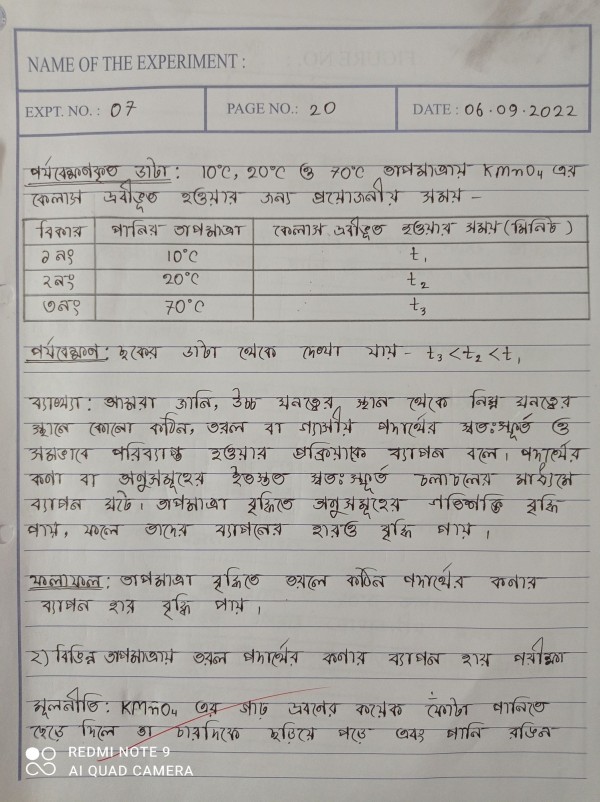 NAME OF THE EXPERIMENT :
EXPT. NO. : 07 PAGE NO.: 20 DATE : 06.09.2022
পর্যবেক্ষণকৃত ডাটা : 10°C, 20°C ও 70°C তাপমাত্রায় KMnO₄ এর
কেলাস দ্রবীভূত হওয়ার জন্য প্রয়োজনীয় সময় -
বিকার পানির তাপমাত্রা কেলাস দ্রবীভূত হওয়ার সময় (মিনিট)
১নং 10°C t₁
২নং 20°C t₂
৩নং 70°C t₃
পর্যবেক্ষণ : ছকের ডাটা থেকে দেখা যায় - t₃ < t₂ < t₁
ব্যাখ্যা : আমরা জানি, উচ্চ ঘনত্বের স্থান থেকে নিম্ন ঘনত্বের
স্থানে কোনো কঠিন, তরল বা গ্যাসীয় পদার্থের স্বতঃস্ফূর্ত ও
সমভাবে পরিব্যাপ্ত হওয়ার প্রক্রিয়াকে ব্যাপন বলে। পদার্থের
কণা বা অনুসমূহের ইতস্তত স্বতঃস্ফূর্ত চলাচলের মাধ্যমে
ব্যাপন ঘটে। তাপমাত্রা বৃদ্ধিতে অনুসমূহের গতিশক্তি বৃদ্ধি
পায়, ফলে তাদের ব্যাপনের হারও বৃদ্ধি পায়।
ফলাফল : তাপমাত্রা বৃদ্ধিতে তরলে কঠিন পদার্থের কণার
ব্যাপন হার বৃদ্ধি পায়।
২) বিভিন্ন তাপমাত্রায় তরল পদার্থের কণার ব্যাপন হার পরীক্ষা
মূলনীতি : KMnO₄ এর গাঢ় দ্রবণের কয়েক ফোঁটা পানিতে
ছেড়ে দিলে তা চারদিকে ছড়িয়ে পড়ে এবং পানি রঙিন
REDMI NOTE 9
AI QUAD CAMERA